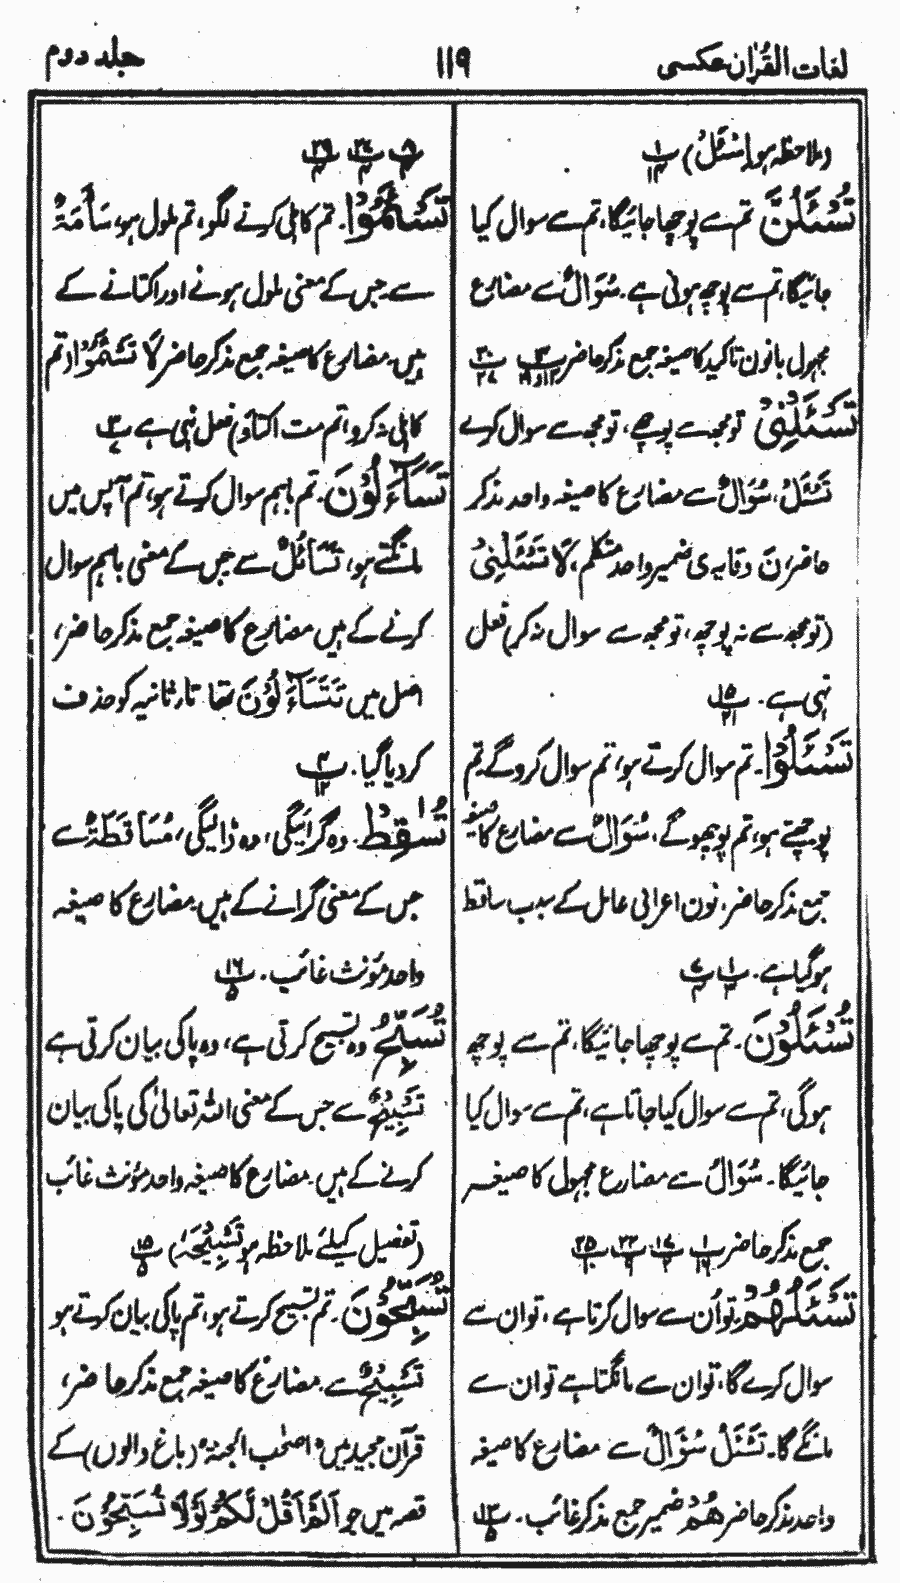 لغات القرآن عکسی
۱۱۹
جلد دوم
(ملاحظہ ہو اِسْئَلْ) ۱/۱۴
تُسْئَلُنَّ تم سے پوچھا جائیگا، تم سے سوال کیا
جائیگا، تم سے پوچھ ہوئی ہے۔ سُوَالٌ سے مضارع
مجہول بانون تاکید کا صیغہ جمع مذکر حاضر
تَسْئَلْنِیْ تو مجھ سے پوچھے، تو مجھ سے سوال کرے
تَسْئَلُ، سُوَالٌ سے مضارع کا صیغہ واحد مذکر
حاضر، نَ وقایہ ی ضمیر واحد متکلم، لَا تَسْئَلْنِیْ
(تو مجھ سے نہ پوچھ، تو مجھ سے سوال نہ کر) فعل
نہی ہے۔ ۱۵/۲۱
تَسْئَلُوْا۔ تم سوال کرتے ہو، تم سوال کرو گے۔ تم
پوچھتے ہو، تم پوچھو گے، سُوَالٌ سے مضارع کا صیغہ
جمع مذکر حاضر، نون اعرابی عامل کے سبب ساقط
ہوگیا ہے۔
تُسْئَلُوْنَ۔ تم سے پوچھا جائیگا، تم سے پوچھ
ہوگی، تم سے سوال کیا جاتا ہے، تم سے سوال کیا
جائیگا۔ سُوَالٌ سے مضارع مجہول کا صیغہ
جمع مذکر حاضر
تَسْئَلُهُمْ۔ تو اُن سے سوال کرتا ہے، تو ان سے
سوال کرے گا، تو ان سے مانگتا ہے تو ان سے
مانگے گا۔ تَسْئَلُ سُؤَالٌ سے مضارع کا صیغہ
واحد مذکر حاضر هُمْ ضمیر جمع مذکر غائب۔ ۱۳/۵
تَسْئَمُوْا۔ تم کاہلی کرنے لگو، تم ملول ہو، سَأْمَۃٌ
سے۔ جس کے معنی ملول ہونے اور اکتانے کے
ہیں۔ مضارع کا صیغہ جمع مذکر حاضر لَا تَسْئَمُوْا (تم
کاہلی نہ کرو، تم مت اکتاؤ) فعل نہی ہے ۳/۷
تَسَآءَلُوْنَ۔ تم باہم سوال کرتے ہو، تم آپس میں
مانگتے ہو، تَسَائُلٌ سے جس کے معنی باہم سوال
کرنے کے ہیں مضارع کا صیغہ جمع مذکر حاضر،
اصل میں تَتَسَآءَلُوْنَ تھا تاء ثانیہ کو حذف
کر دیا گیا۔ ۴/۱۲
تُسٰقِطْ۔ وہ گرائیگی، وہ ڈالیگی، مُسَاقَطَۃٌ سے
جس کے معنی گرانے کے ہیں۔ مضارع کا صیغہ
واحد مؤنث غائب۔ ۱۶/۵
تُسَبِّحُ وہ تسبیح کرتی ہے، وہ پاکی بیان کرتی ہے
تَسْبِیْحٌ سے جس کے معنی اللہ تعالیٰ کی پاکی بیان
کرنے کے ہیں۔ مضارع کا صیغہ واحد مؤنث غائب
(تفصیل کیلئے ملاحظہ ہو تَسْبِیْحَہٗ) ۱۵/۵
تُسَبِّحُوْنَ۔ تم تسبیح کرتے ہو، تم پاکی بیان کرتے ہو
تَسْبِیْحٌ سے۔ مضارع کا صیغہ جمع مذکر حاضر،
قرآن مجید میں اصحٰب الجنہ (باغ والوں) کے
قصہ میں جو اَلَمْ اَقُلْ لَّکُمْ لَوْلَا تُسَبِّحُوْنَ۔